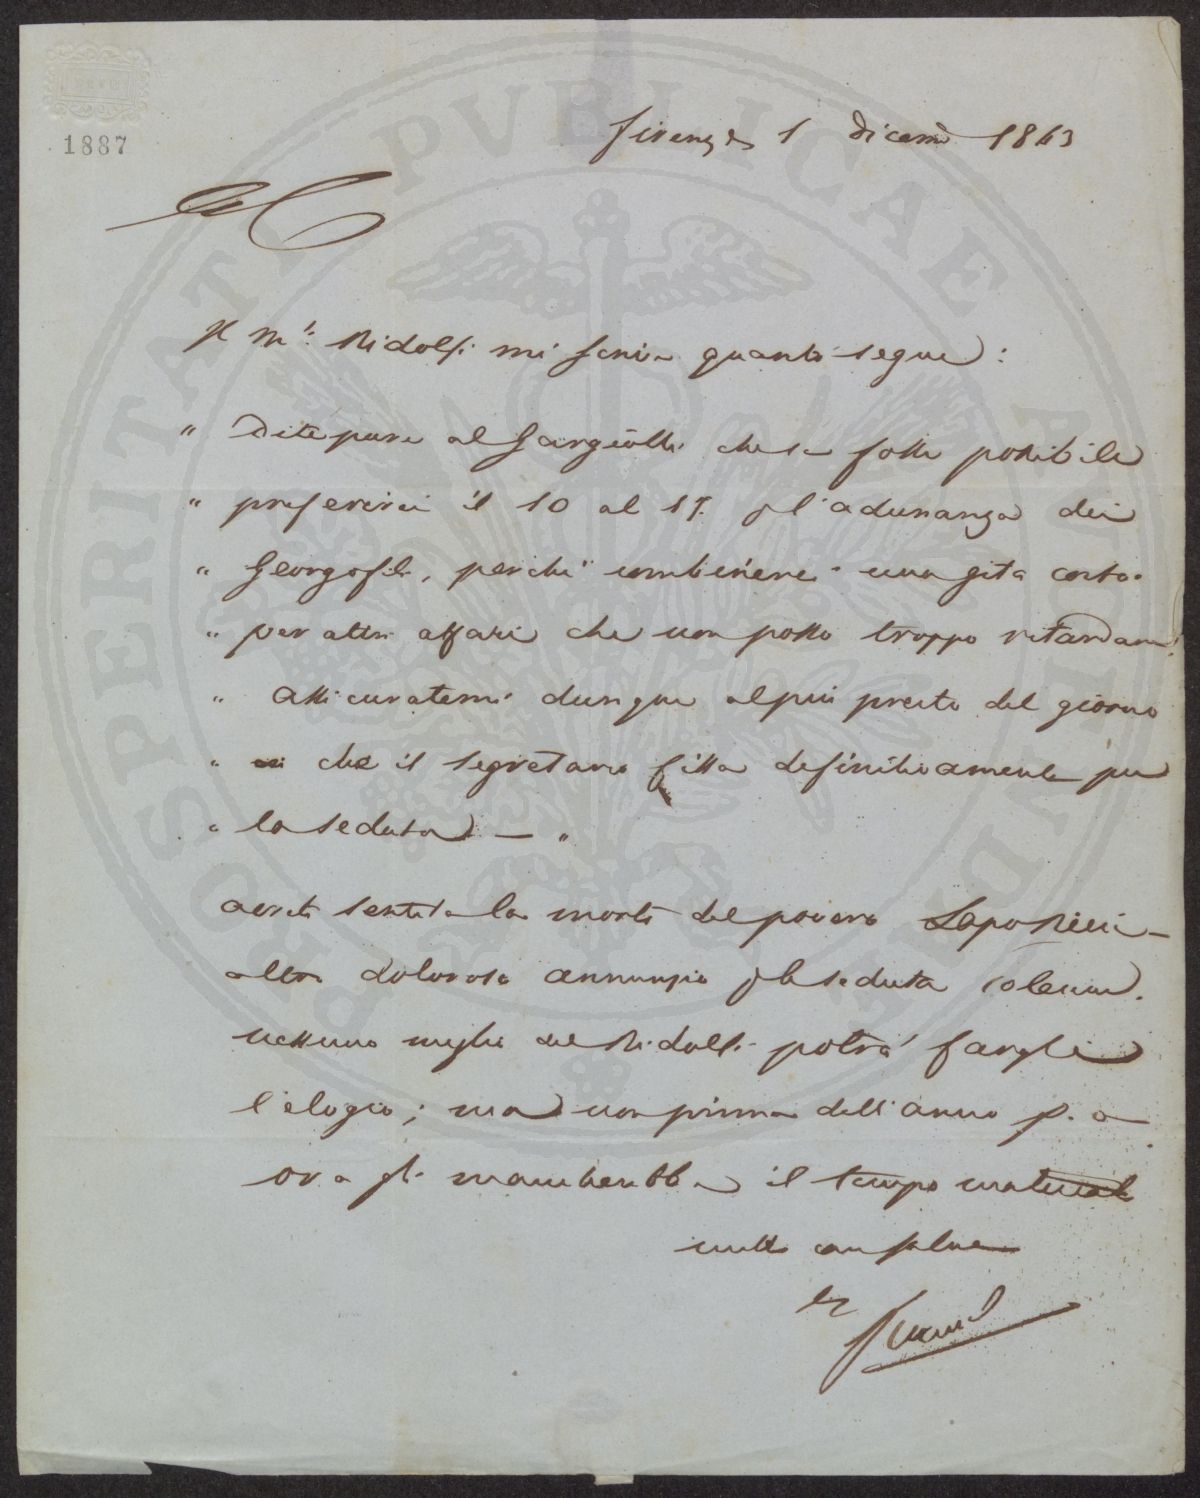 1887
Firenze 1 Dicem 1863
Il M.e Ridolfi mi scrive quanto segue:
" Dite pure al Gargiolli che se fosse possibile
" preferirei il 10 al 17. pl'adunanza dei
" Georgofili, perchè combinerei una gita costà
" per altri affari che non posso troppo ritardare.
" Assicuratemi dunque al più presto del giorno
" che il segretario fissa definitivamente per
" la seduta — "
avrete sentita la morte del povero Lapo Ricci —
altro doloroso annunzio p la seduta solenne.
nessuno meglio del Ridolfi potrà fargli
l'elogio; ma non prima dell'anno p. a
ora gli mancherebbe il tempo materiale
PROSPERITATI PVBLICAE AVGENDAE